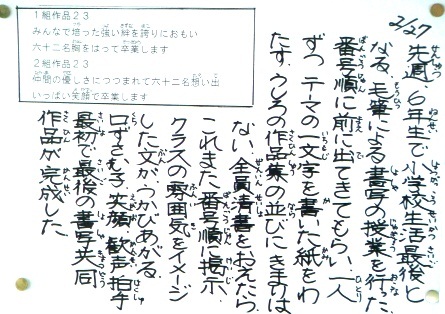 1組作品23
みんなで培った強い絆を誇りにおもい
六十二名胸をはって卒業します
2組作品23
仲間の優しさにつつまれて六十二名想い出
いっぱい笑顔で卒業します
2/27
先週、6年生で小学校生活最後と
なる、毛筆による書写の授業を行った。
番号順に前に出てきてもらい、一人
ずつ、テーマの一文字を書いた紙をわ
たす。うしろの作品集の並びにきまりは
ない。全員清書をおえたら、
これまた番号順に掲示。
クラスの雰囲気をイメージ
した文がうかびあがる。
口ずさむ子、笑顔、歓声、拍手
最初で最後の書写共同
作品が完成した。